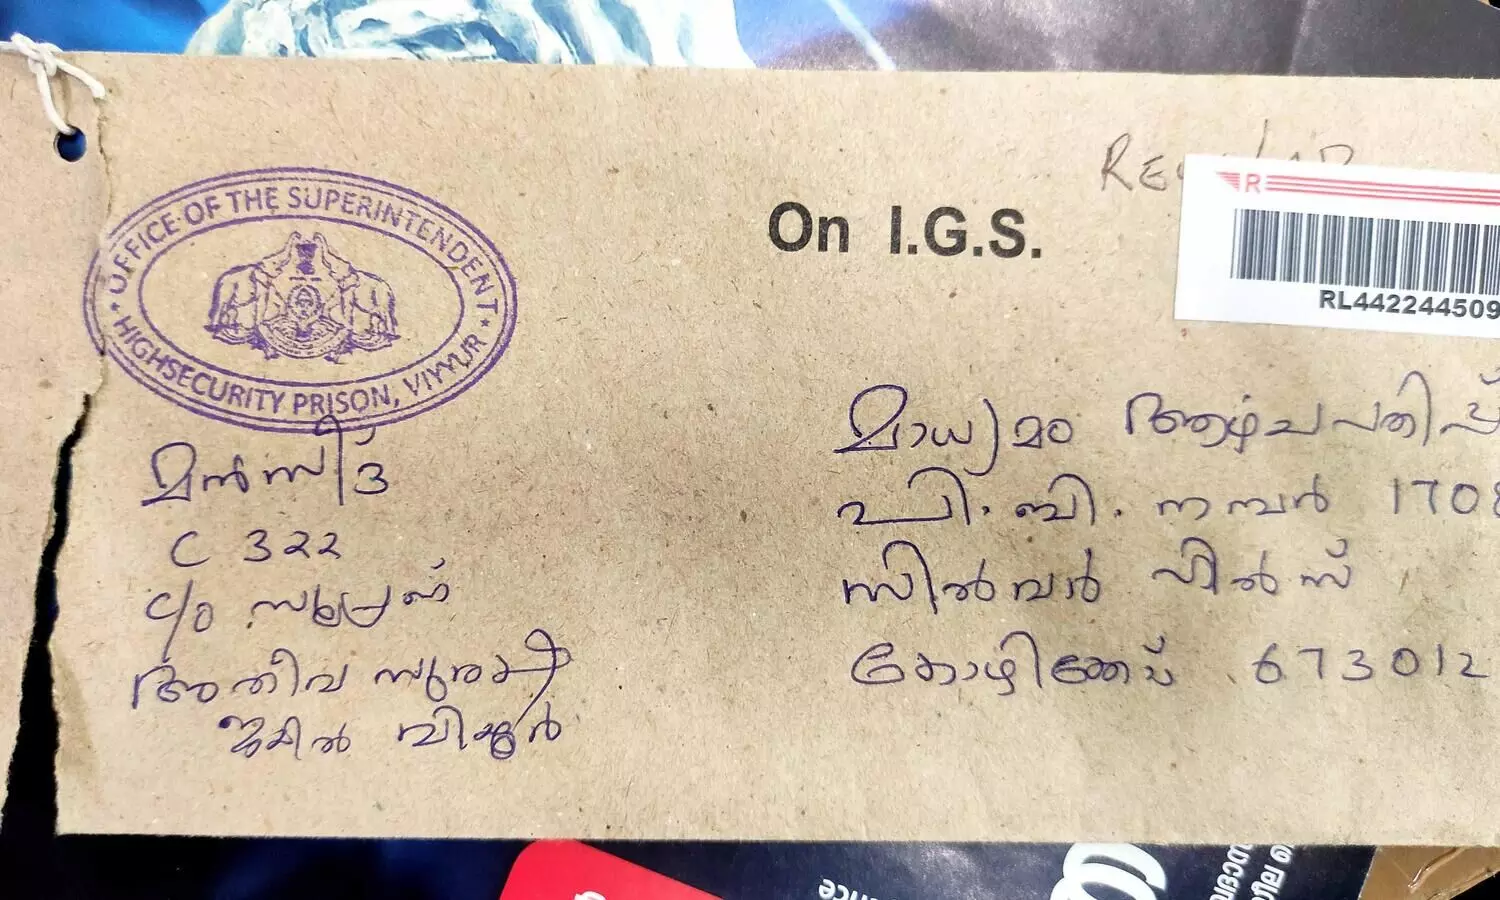 OFFICE OF THE SUPERINTENDENT
HIGHSECURITY PRISON, VIYYUR
On I.G.S.
R
RL442244509
മൻസീദ്
C 322
C/o സൂപ്രണ്ട്
അതീവ സുരക്ഷ
ജയിൽ വിയ്യൂർ
മാധ്യമം ആഴ്ചപ്പതിപ്പ്
പി.ബി. നമ്പർ 1708
സിൽവർ ഹിൽസ്
കോഴിക്കോട് 673012